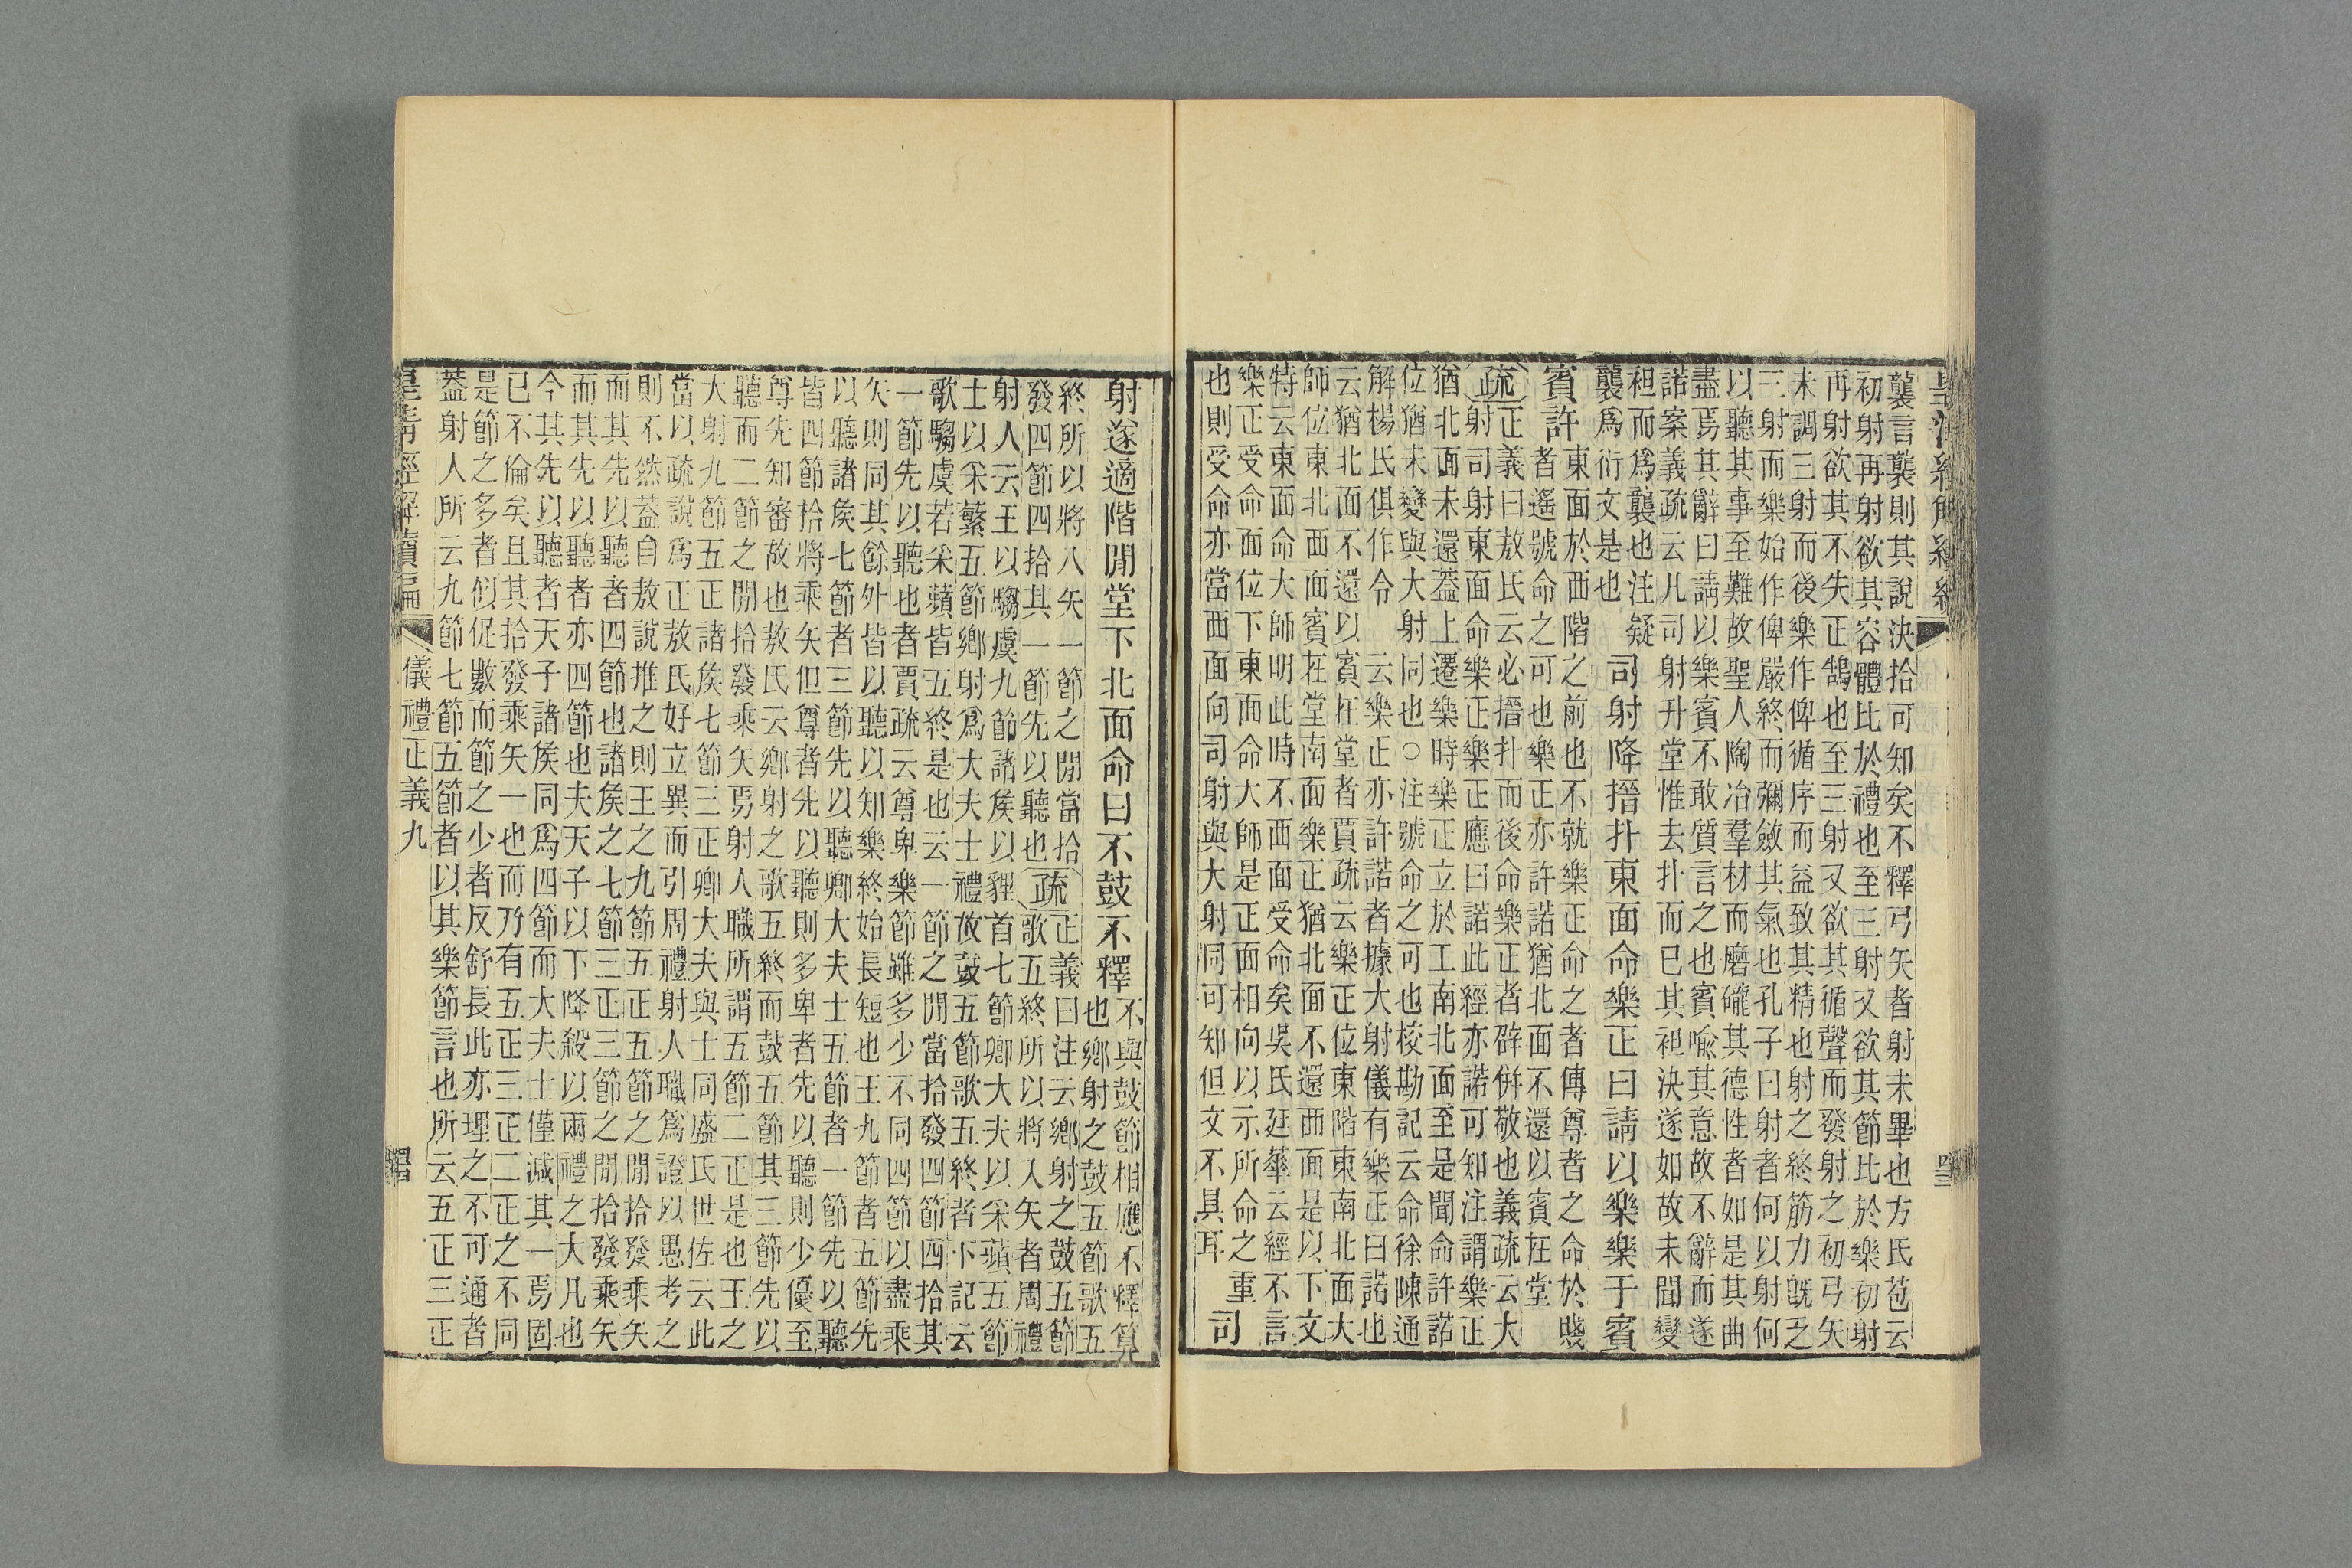 襲言襲則其說決拾可知矣不釋弓矢者射未畢也方氏苞云
初射再射欲其容體比於禮也至三射又欲其節比於樂初射
再射欲其不失正鵠也至三射又欲其循聲而發射之初弓矢
未調三射而後樂作俾循序而益致其精也射之終筋力旣乏
三射而樂始作俾嚴終而彌斂其氣也孔子曰射者何以射何
以聽其事至難故聖人陶冶羣材而磨礲其德性者如是其曲
盡焉其辭曰請以樂賓不敢質言之也賓喩其意故不辭而遂
諾案義疏云凡司射升堂惟去扑而已其袒決遂如故未聞變
袒而爲襲也注疑
襲爲衍文是也
司射降搢扑東面命樂正曰請以樂樂于賓
賓許
東面於西階之前也不就樂正命之者傳尊者之命於賤
者遙號命之可也樂正亦許諾猶北面不還以賓在堂
疏
正義曰敖氏云必搢扑而後命樂正者辟倂敬也義疏云大
射司射東面命樂正樂正應曰諾此經亦諾可知注謂樂正
猶北面未還蓋上遷樂時樂正立於工南北面至是聞命許諾
位猶未變與大射同也○注號命之可也校勘記云命徐陳通
解楊氏俱作令　云樂正亦許諾者據大射儀有樂正曰諾也
云猶北面不還以賓在堂者賈疏云樂正位東階東南北面大
師位東北西面賓在堂南面樂正猶北面不還西面是以下文
特云東面命大師明此時不西面受命矣吳氏廷華云經不言
樂正受命面位下東面命大師是正面相向以示所命之重
也則受命亦當西面向司射與大射同可知但文不具耳
司
射遂適階閒堂下北面命曰不鼓不釋
不與鼓節相應不釋筭
也鄉射之鼓五節歌五
終所以將八矢一節之閒當拾
發四節四拾其一節先以聽也
疏
正義曰注云鄉射之鼓五節
歌五終所以將入矢者周禮
射人云王以騶虞九節諸矦以貍首七節卿大夫以采蘋五節
士以采蘩五節鄉射爲大夫士禮故鼓五節歌五終者下記云
歌騶虞若采蘋皆五終是也云一節之閒當拾發四節四拾其
一節先以聽也者賈疏云尊卑樂節雖多少不同四節以盡乘
矢則同其餘外皆以聽以知樂終始長短也王九節者五節先
以聽諸矦七節者三節先以聽卿大夫士五節者一節先以聽
皆四節拾將乘矢但尊者先以聽則多卑者先以聽則少優至
尊先知審故也敖氏云鄉射之歌五終而鼓五節其三節先以
聽而二節之閒拾發乘矢焉射人職所謂五節二正是也王之
大射九節五正諸矦七節三正卿大夫與士同盛氏世佐云此
當以疏說爲正敖氏好立異而引周禮射人職爲證以愚考之
則不然蓋自敖說推之則王之九節五正五節之閒拾發乘矢
而其先以聽者四節也諸矦之七節三正三節之閒拾發乘矢
而其先以聽者亦四節也夫天子以下降殺以兩禮之大凡也
今其先以聽者天子諸矦同爲四節而大夫士僅減其一焉固
已不倫矣且其拾發乘矢一也而乃有五正三正二正之不同
是節之多者似促數而節之少者反舒長此亦理之不可通者
蓋射人所云九節七節五節者以其樂節言也所云五正三正
皇淸經解續編
儀禮正義九